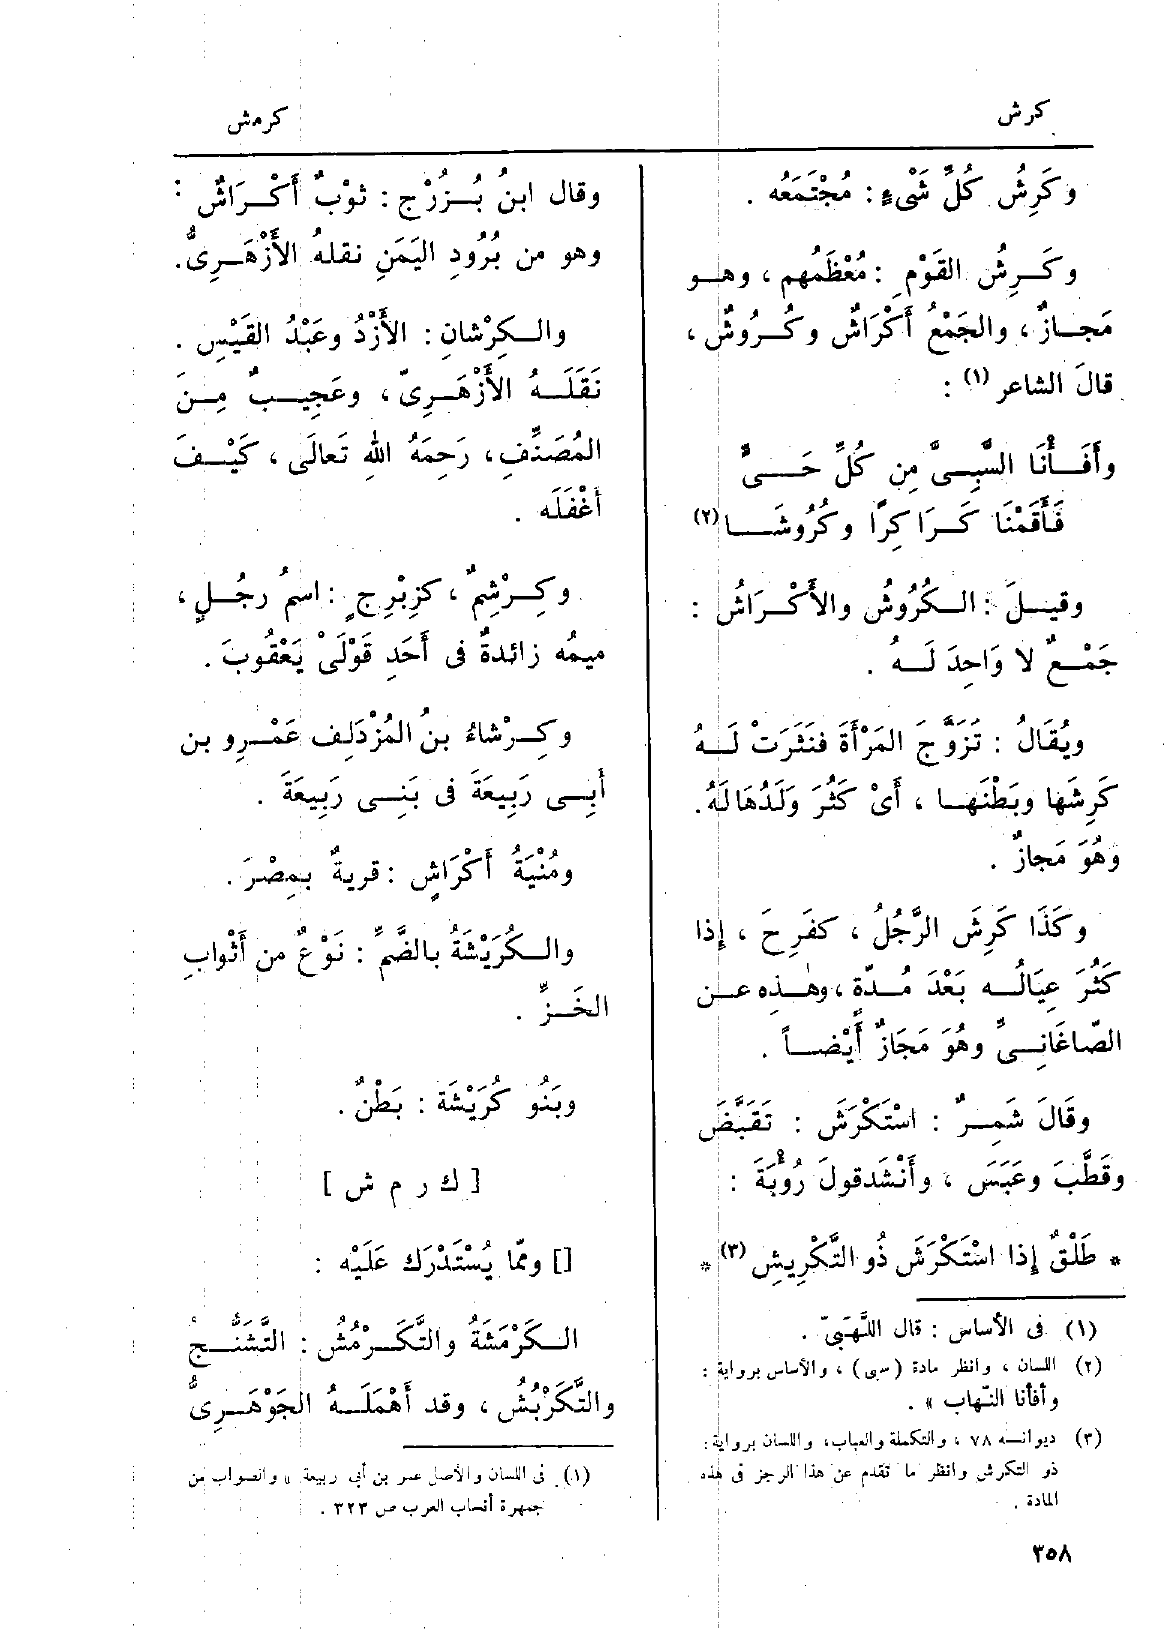 كرش
كرمش
وكَرِشُ كُلِّ شَىْءٍ : مُجْتَمَعُه .
وكَـرِشُ القَوْمِ : مُعْظَمُهم ، وهـو
مَجـازٌ ، والجَمْعُ أَكْرَاشٌ وكُـرُوشٌ ،
قالَ الشاعر (١) :
وأَفَـأْنَا السَّبِـىَّ مِن كُلِّ حَـىٍّ
فَأَقَمْنَا كَـرَاكِرًا وكُرُوشَـا (٢)
وقيـلَ : الـكُرُوشُ والأَكْـرَاشُ :
جَمْـعٌ لا وَاحِدَ لَـهُ .
ويُقَالُ : تَزَوَّجَ المَرْأَةَ فنَثَرَتْ لَـهُ
كَرِشَها وبَطْنَهـا ، أَىْ كَثُرَ وَلَدُهَا لَهُ .
وهُوَ مَجازٌ .
وكَذَا كَرِشَ الرَّجُلُ ، كفَرِحَ ، إِذا
كَثُرَ عِيَالُـه بَعْدَ مُـدَّةٍ ، وهٰـذِه عـن
الصّاغَانِـىِّ وهُوَ مَجَازٌ أَيْضـاً .
وقَالَ شَمِـرٌ : اسْتَكْرَشَ : تَقَبَّضَ
وقَطَّبَ وعَبَسَ ، وأَنْشَدَ قولَ رُؤْبَةَ :
* طَلْقٌ إِذا اسْتَكْرَشَ ذُو التَّكْرِيشِ (٣) *
(١) فى الأساس : قال اللَّهَبِىّ .
(٢) اللسان ، وانظر مادة (سبى) ، والأساس برواية :
وأفأنا النّهاب » .
(٣) ديوانـه ٧٨ ، والتكملة والعباب، واللسان برواية :
ذو التكرش وانظر ما تقدم عن هذا الرجز فى هذه
المادة .
٣٥٨
وقال ابنُ بُـزُرْج : ثوْبٌ أَكْـرَاشٌ :
وهو من بُرُودِ اليَمَنِ نقلهُ الأَزْهَـرِىُّ .
والـكِرْشانِ : الأَزْدُ وعَبْدُ القَيْسِ .
نَقَلَـهُ الأَزْهَـرِىّ ، وعَجِيـبٌ مِـنَ
المُصَنِّفِ ، رَحِمَهُ اللهِ تَعالَى ، كَيْـفَ
أَغْفَلَه .
وكِـرْشِمٌ ، كزِبْرِجٍ : اسمُ رجُـلٍ ،
ميمُه زائدةٌ فى أَحَدِ قَوْلَىْ يَعْقُوبَ .
وكِـرْشاءُ بنُ المُزْدَلِف عَمْـرِو بن
أَبِـى رَبِيعَةَ فى بَنِـى رَبِيعَةَ .
ومُنْيَةُ أَكْرَاشٍ : قريةٌ بـمِصْرَ .
والـكُرَيْشَةُ بالضّمّ : نَوْعٌ من أَثْوابِ
الخَـزِّ .
وبَنُو كُرَيْشَة : بَطْنٌ .
[ ك ر م ش ]
[] وممّا يُسْتَدْرَك عَلَيْه :
الـكَرْمَشَةُ والتَّكَـرْمُشُ : التَّشَنُّـجُ
والتَّكَرْبُشُ ، وقد أَهْمَلَـهُ الجَوْهَـرِىُّ
(١) فى اللسان والأصل عمر بن أبى ربيعة » والصواب من
جمهرة أنساب العرب ص ٣٢٣ .